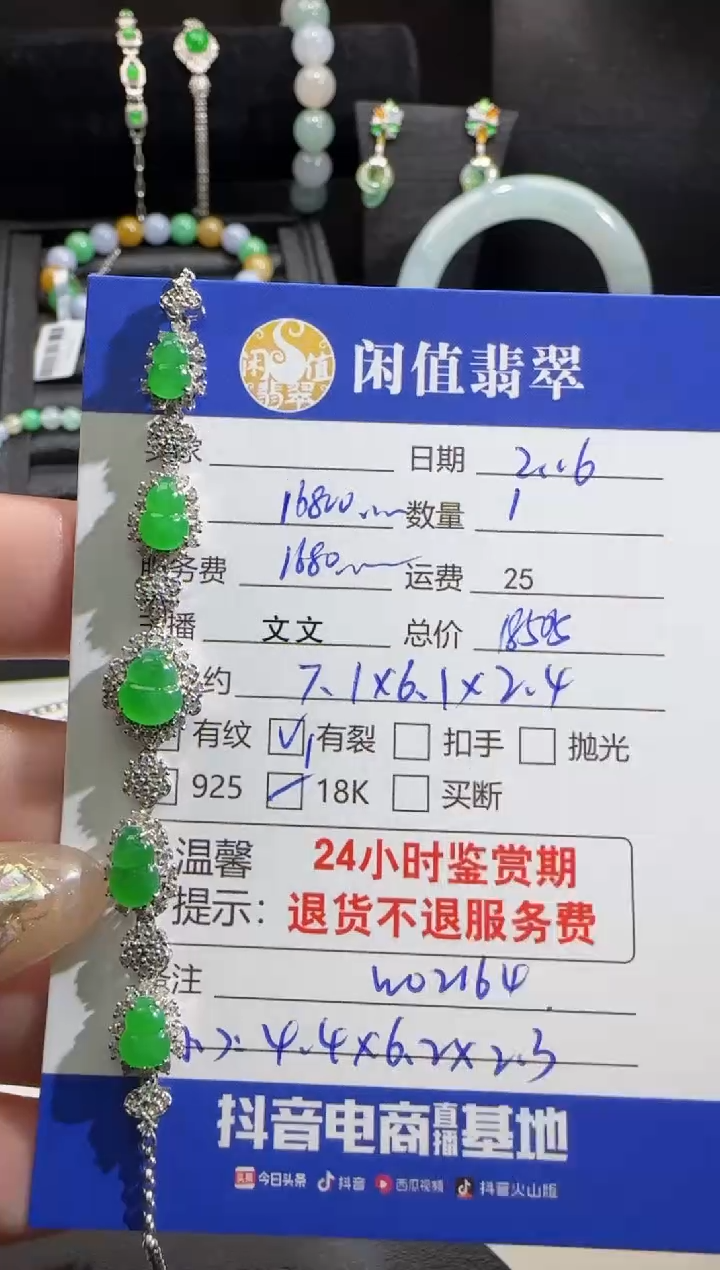 闲值翡翠
闲值翡翠
日期 2..6
16800 数量 1
服务费 1680 运费 25
播 文文 总价 18505
约 7.1x6.1x2.4
有纹 有裂 扣手 抛光
925 18K 买断
温馨提示: 24小时鉴赏期
退货不退服务费
注 W02164
4.4x6.2x2.3
抖音电商直播基地
头条 今日头条 抖音 西瓜视频 抖音火山版